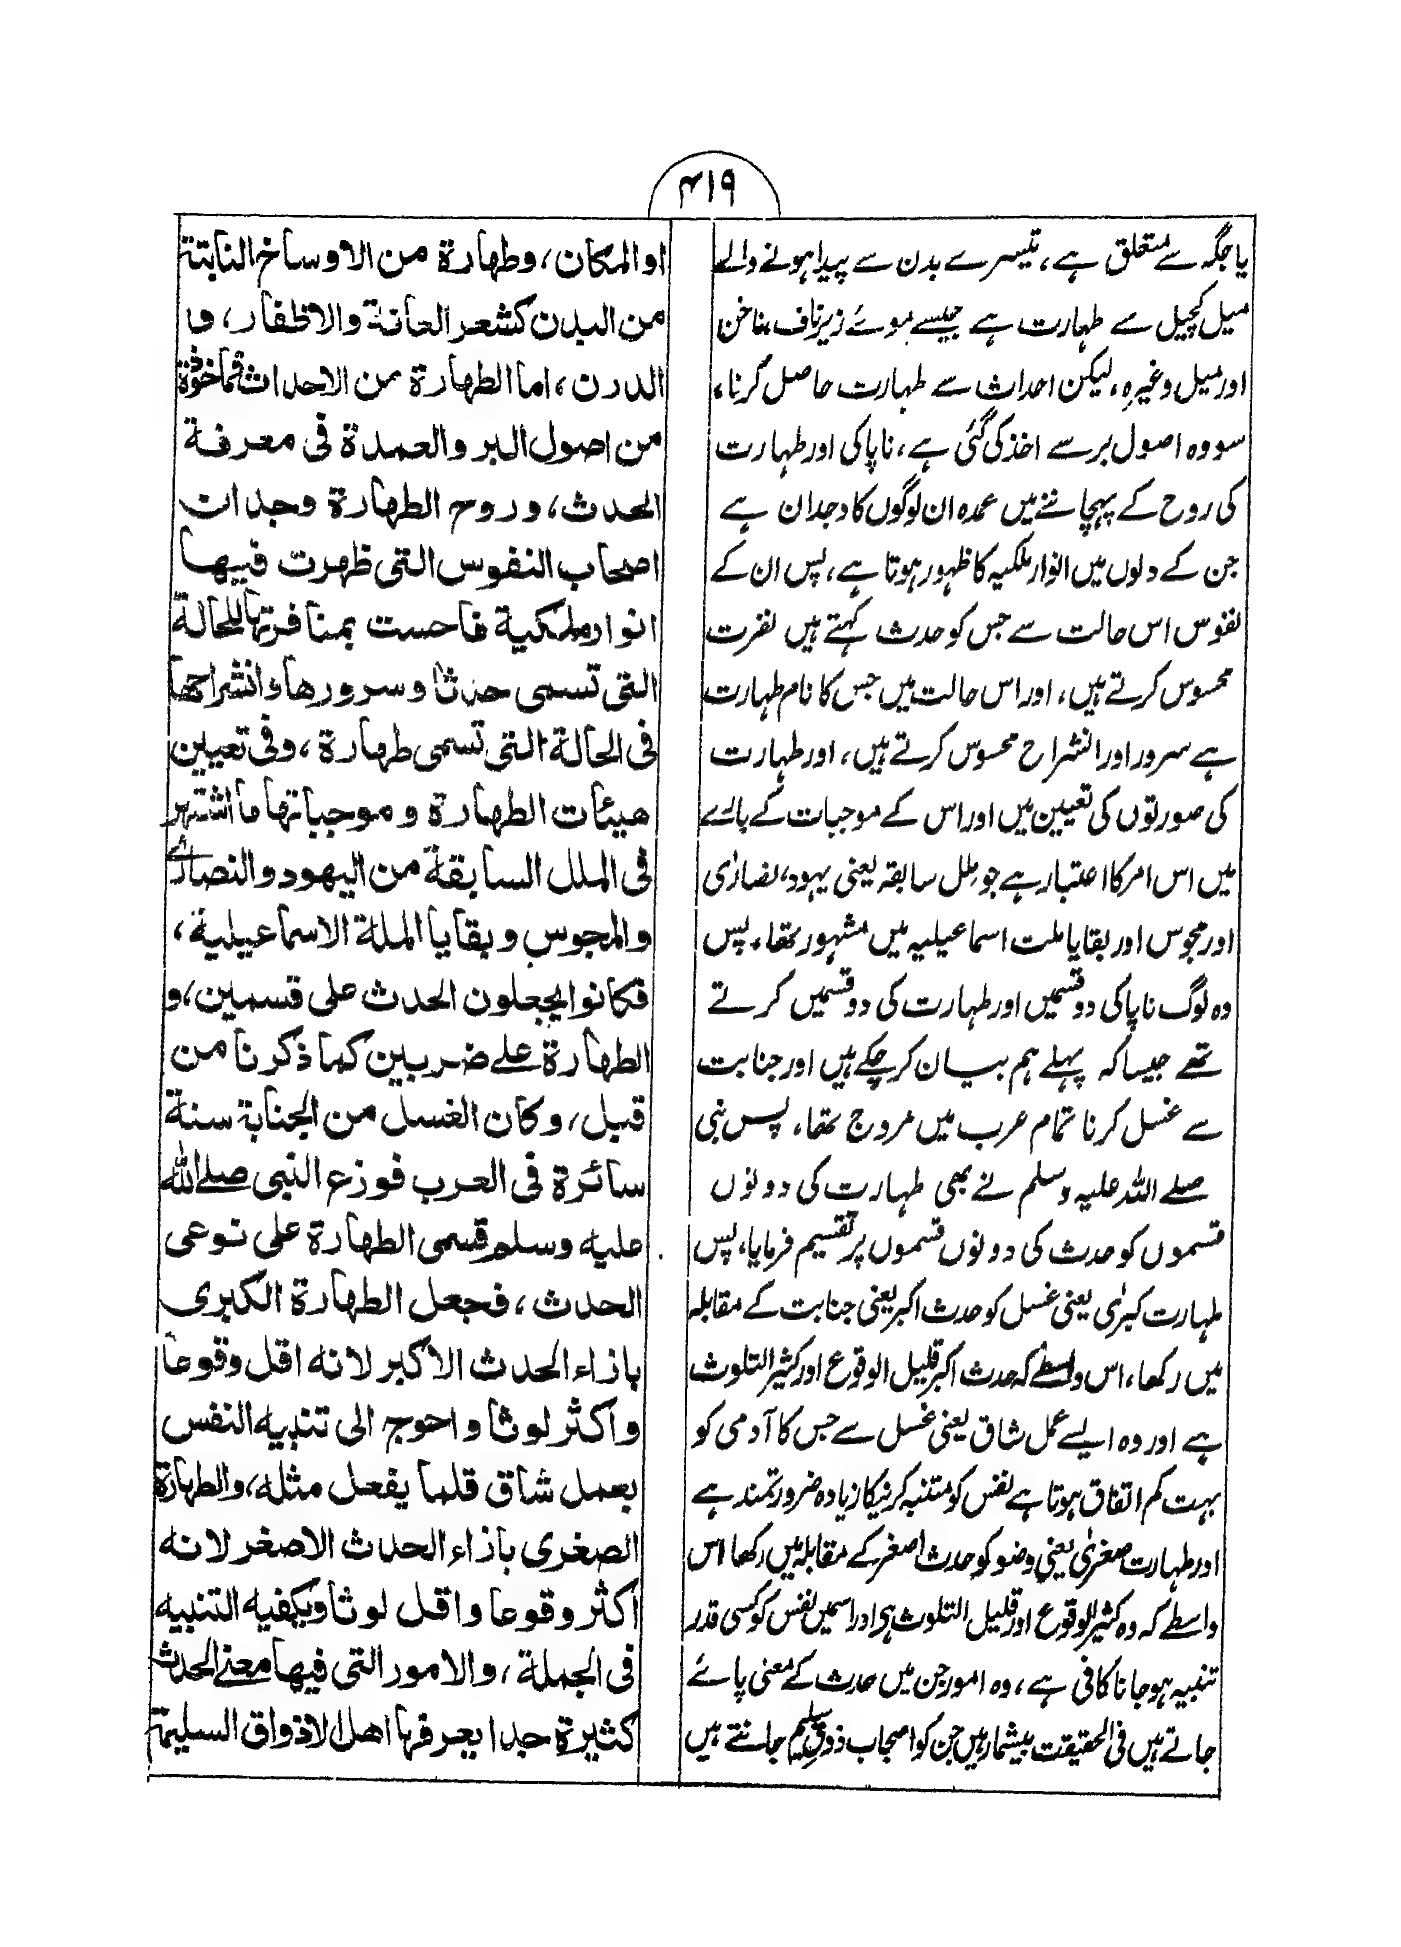 ۴۱۹
یا جگہ سے متعلق ہے، تیسرے بدن سے پیدا ہونے والے
میل کچیل سے طہارت ہے جیسے موئے زیر ناف، ناخن
اور میل وغیرہ، لیکن احداث سے طہارت حاصل کرنا،
سو وہ اصول بر سے اخذ کی گئی ہے، ناپاکی اور طہارت
کی روح کے پہچاننے میں عمدہ ان لوگوں کا وجدان ہے
جن کے دلوں میں انوار ملکیہ کا ظہور ہوتا ہے، پس ان کے
نفوس اس حالت سے جس کو حدث کہتے ہیں نفرت
محسوس کرتے ہیں، اور اس حالت میں جس کا نام طہارت
ہے سرور اور انشراح محسوس کرتے ہیں، اور طہارت
کی صورتوں کی تعیین میں اور اس کے موجبات کے بارے
میں اس امر کا اعتبار ہے جو ملل سابقہ یعنی یہود، نصارٰی
اور مجوس اور بقایا ملت اسماعیلیہ میں مشہور تھا، پس
وہ لوگ ناپاکی کی دو قسمیں اور طہارت کی دو قسمیں کرتے
تھے جیسا کہ پہلے ہم بیان کر چکے ہیں اور جنابت
سے غسل کرنا تمام عرب میں مروج تھا، پس نبی
صلے اللہ علیہ وسلم نے بھی طہارت کی دونوں
قسموں کو حدث کی دونوں قسموں پر تقسیم فرمایا، پس
طہارت کبرٰی یعنی غسل کو حدث اکبر یعنی جنابت کے مقابلہ
میں رکھا، اس واسطے کہ حدث اکبر قلیل الوقوع اور کثیر التلوث
ہے اور وہ ایسے عمل شاق یعنی غسل سے جس کا آدمی کو
بہت کم اتفاق ہوتا ہے نفس کو متنبہ کرنیکا زیادہ ضرورتمند ہے
اور طہارت صغرٰی یعنی وضو کو حدث اصغر کے مقابلہ میں رکھا اس
واسطے کہ وہ کثیر الوقوع اور قلیل التلوث ہی اور اسمیں نفس کو کسی قدر
تنبیہ ہو جانا کافی ہے، وہ امور جن میں حدث کے معنی پائے
جاتے ہیں فی الحقیقت بیشمار ہیں جن کو اصحاب ذوق سلیم جانتے ہیں
او المکان، وطهارة من الاوساخ النابتة
من البدن کشعر العانة والاظفار، و
الدرن، اما الطهارة من الاحداث فماخوذة
من اصول البر والعمدة فی معرفة
الحدث، وروح الطهارة وجدان
اصحاب النفوس التی ظهرت فیها
انوار ملکیة فاحست بمنافرتها للحالة
التی تسمی حدثا وسرورها وانشراحها
فی الحالة التی تسمی طهارة، وفی تعیین
هیئات الطهارة وموجباتها ما اشتهر
فی الملل السابقة من الیهود والنصارٰے
والمجوس وبقایا الملة الاسماعیلیة،
فکانوا یجعلون الحدث علی قسمین، و
الطهارة علے ضربین کما ذکرنا من
قبل، وکان الغسل من الجنابة سنة
سائرة فی العرب فوزع النبی صلے الله
علیه وسلم قسمی الطهارة علی نوعی
الحدث، فجعل الطهارة الکبری
بازاء الحدث الاکبر لانه اقل وقوعا
واکثر لوثا واحوج الی تنبیه النفس
بعمل شاق قلما یفعل مثله، والطهارة
الصغری بازاء الحدث الاصغر لانه
اکثر وقوعا واقل لوثا ویکفیه التنبیه
فی الجملة، والامور التی فیها معنے الحدث
کثیرة جدا یعرفها اهل الاذواق السلیمة